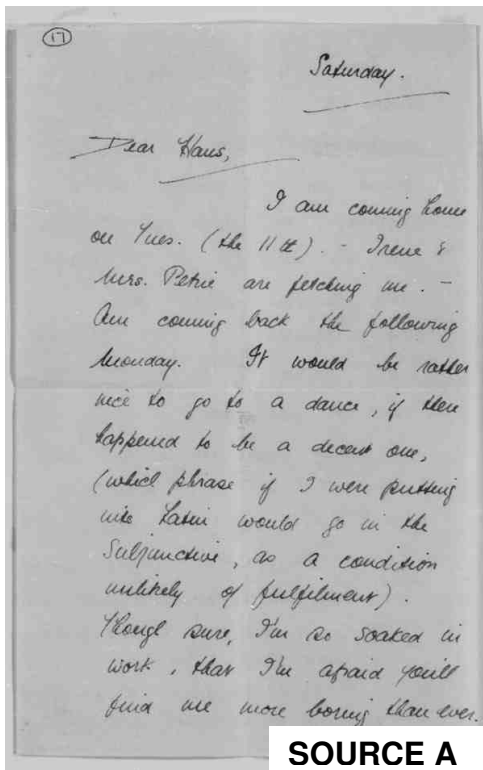 17
Saturday.
Dear Hans,
I am coming home
on Tues. (the 11th). - Irene &
Mrs. Petrie are fetching me. -
Am coming back the following
Monday. It would be rather
nice to go to a dance, if there
happened to be a decent one,
(which phrase if I were putting
into Latin would go in the
Subjunctive, as a condition
unlikely of fulfilment).
Though sure, I'm so soaked in
work, that I'm afraid you'll
find me more boring than ever.
SOURCE A